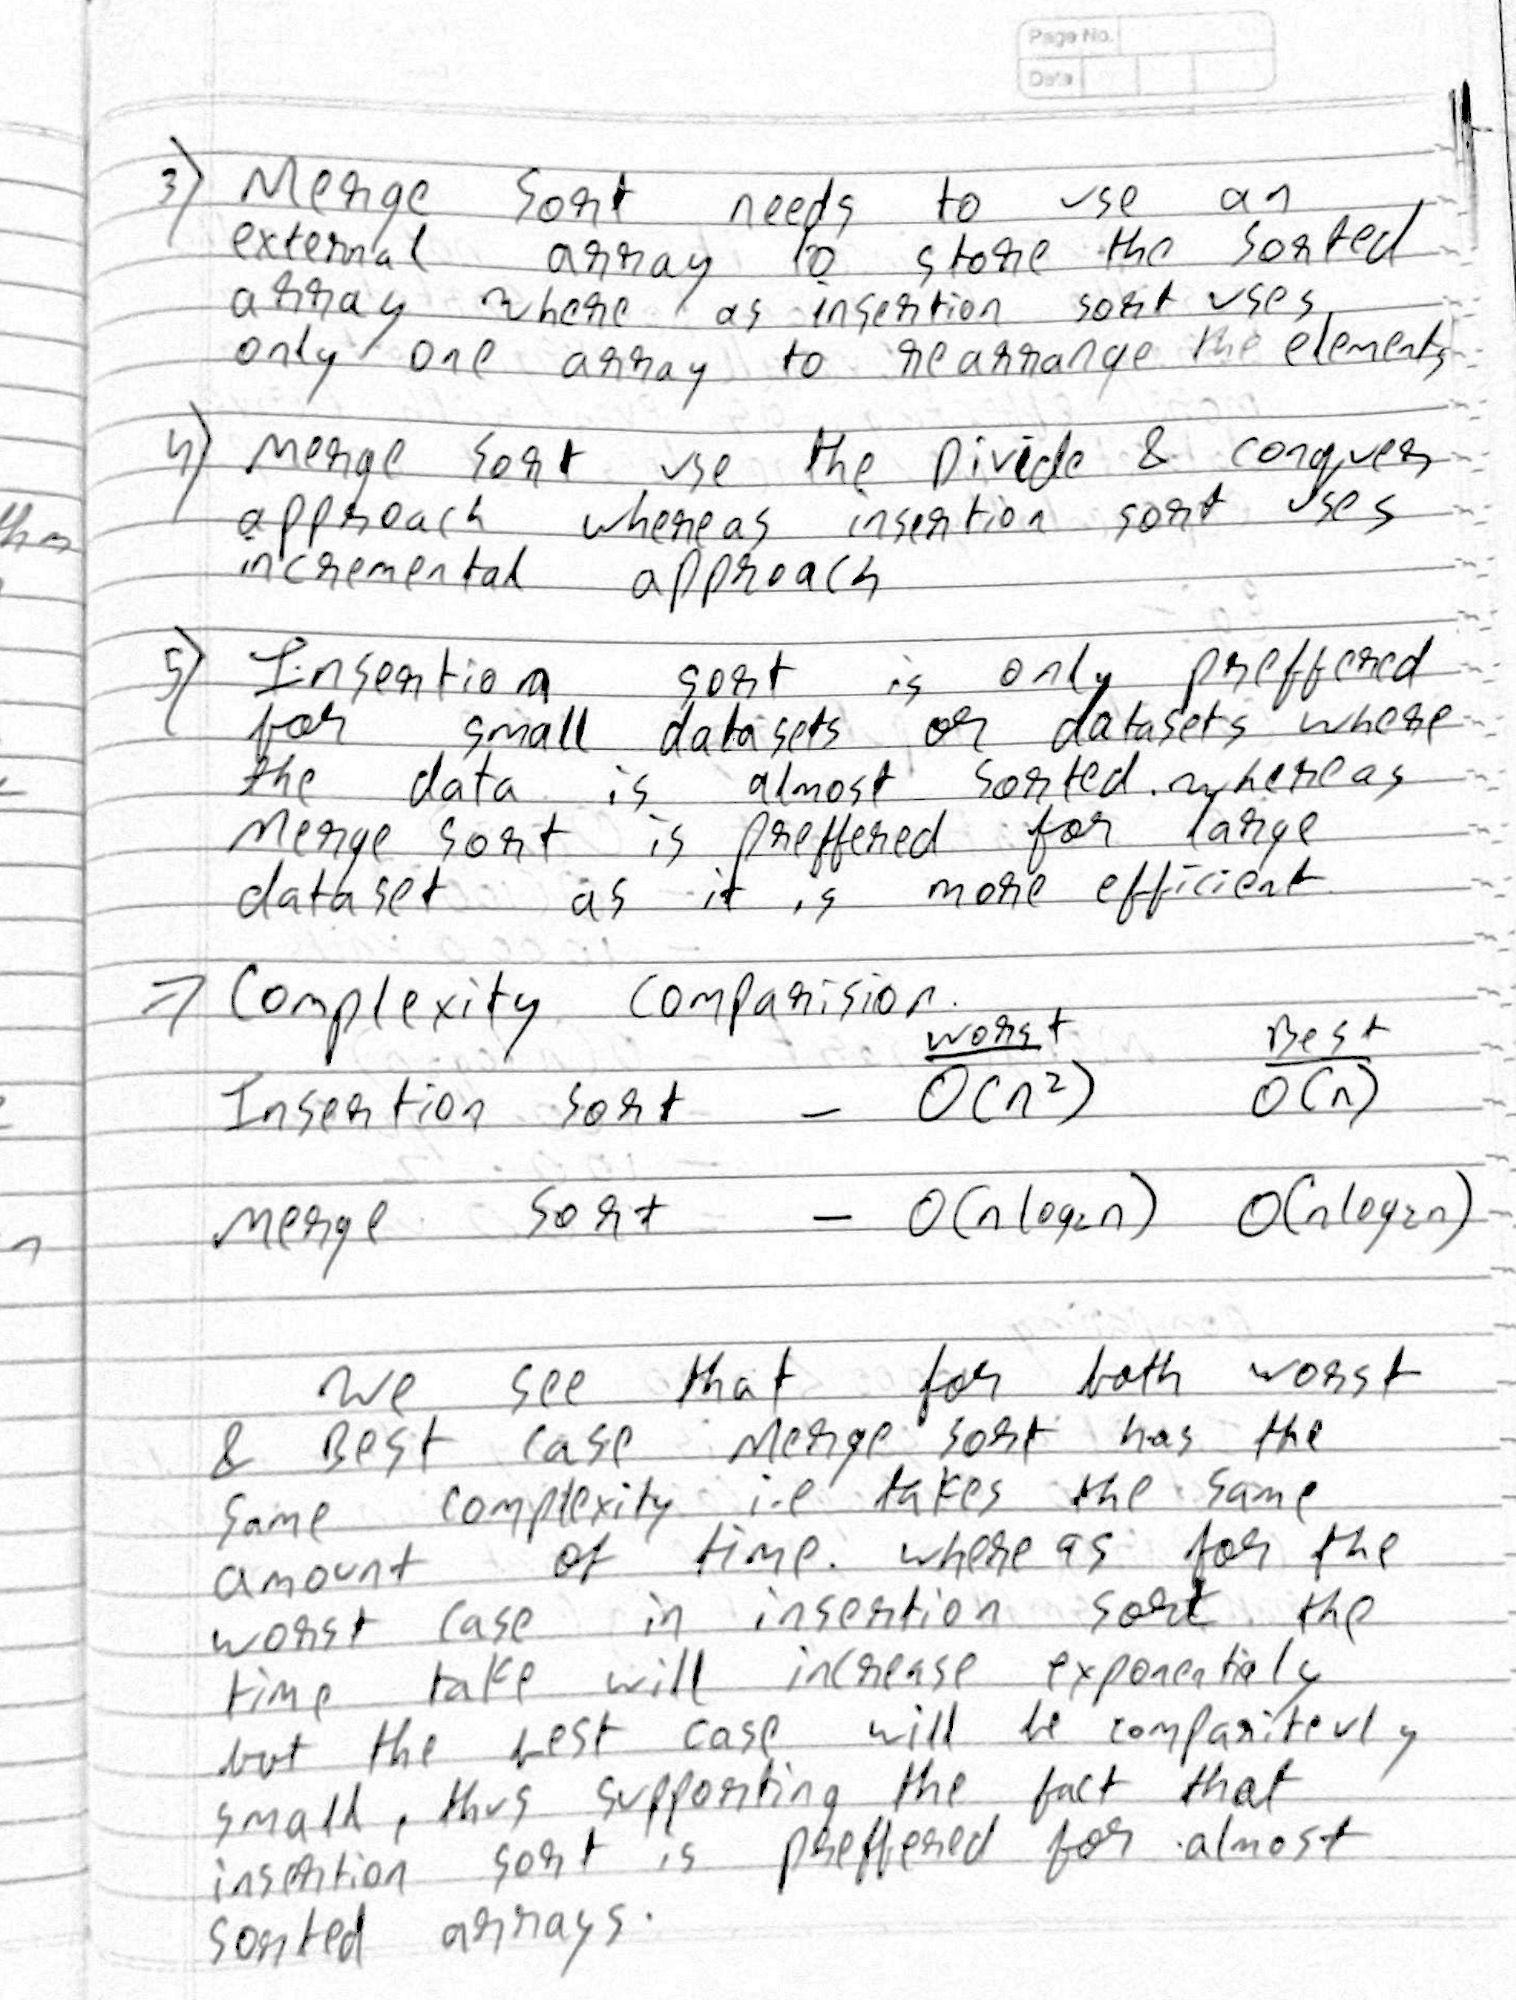 Page No.
Date
3) Merge sort needs to use an
external array to store the sorted
array where as insertion sort uses
only one array to rearrange the elements
4) Merge sort use the Divide & conquer
approach whereas insertion sort uses
incremental approach
5) Insertion sort is only preffered
for small datasets or datasets where
the data is almost sorted. whereas
Merge sort is preffered for large
dataset as it is more efficient
=> Complexity Comparision.
Worst Best
Insertion sort - O(n²) O(n)
Merge sort - O(n log₂n) O(n log₂n)
We see that for both worst
& Best case Merge sort has the
same complexity i.e takes the same
amount of time. where as for the
worst case in insertion sort the
time take will increase exponentialy
but the best case will be comparitevly
small, thus supporting the fact that
insertion sort is preffered for almost
sorted arrays.